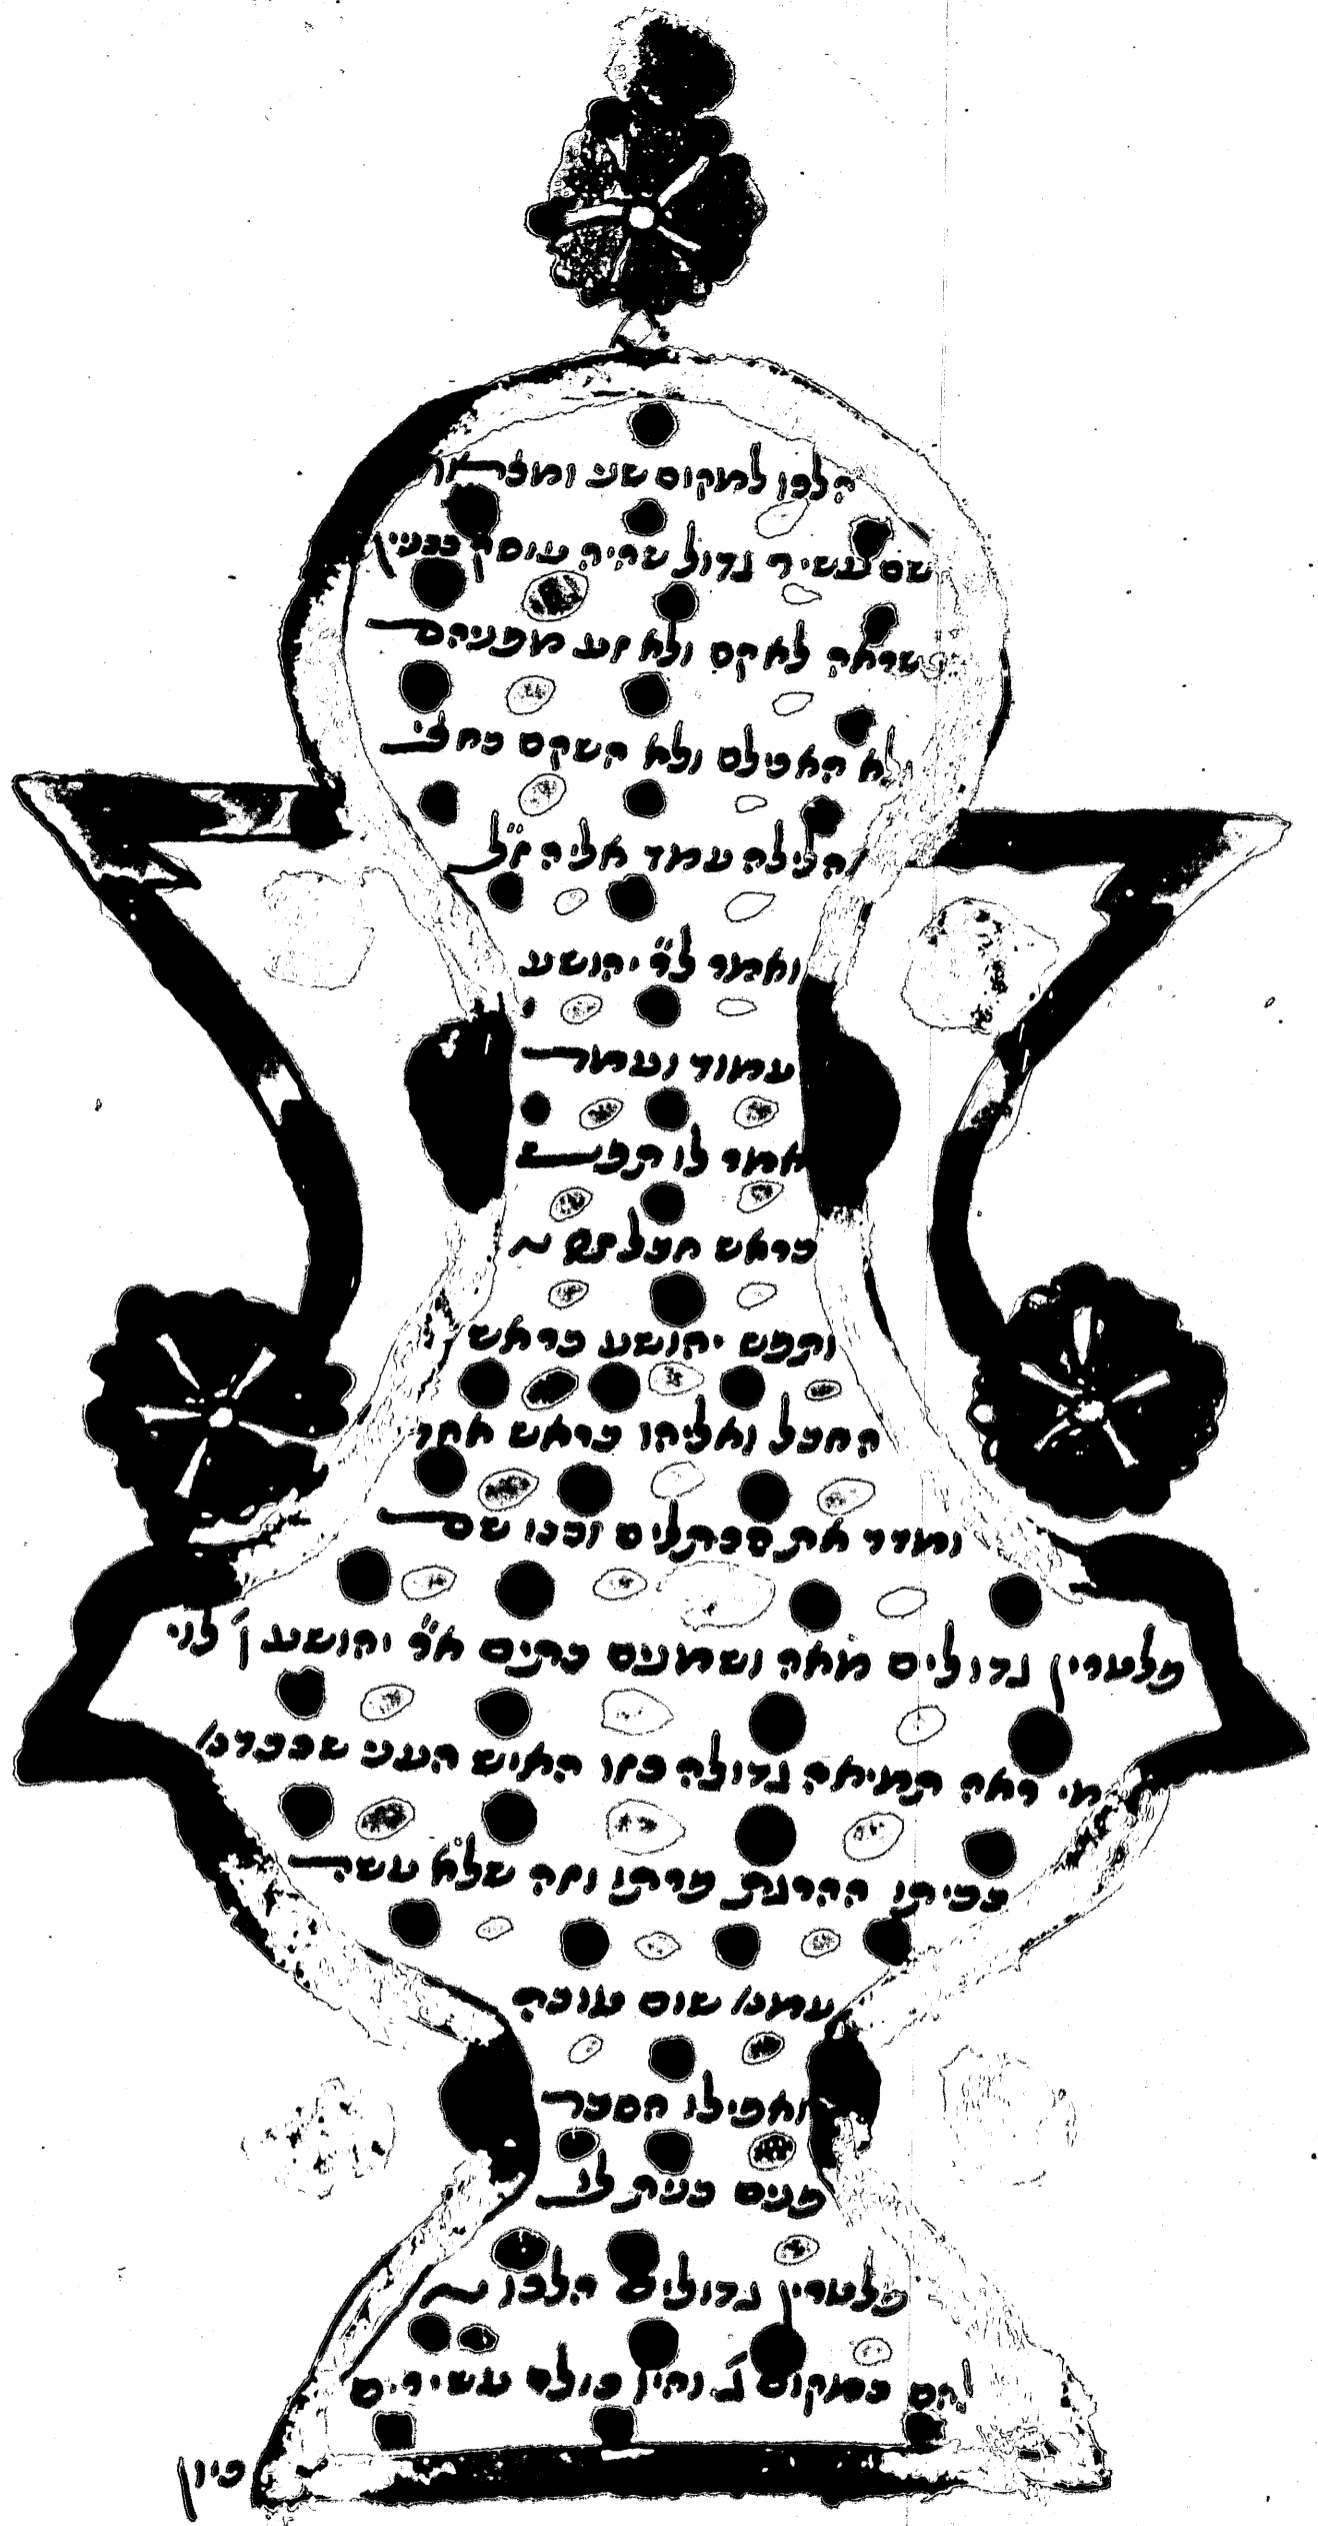 הלכו למקום שני ומצאו
שם עשיר גדול שהיה עוסק בבנין
כשראה לאקם ולא זע מפניהם
ולא האכילם ולא השקם בחצי
הלילה עמד אליה ז״ל
ואמר לר׳ יהושע
עמוד ועמד
אמר לו תפש
בראש חבל זה
ותפש יהושע בראש
החבל ואליהו בראש אחר
ומדד את הכתלים ובנו שם
פלטרין גדולים מאה ושמנים בתים א״ר יהושע ן׳ לוי
מי ראה תמיהא גדולה כזו האיש העני שכבדנו
בביתו הרגת פרתו וזה שלא עשה
עמנו שום טובה
ואפילו הסבר
פנים בנית לו
פלטרין גדולים הלכו
להם במקום ג׳ והין כולם עשירים
כיון